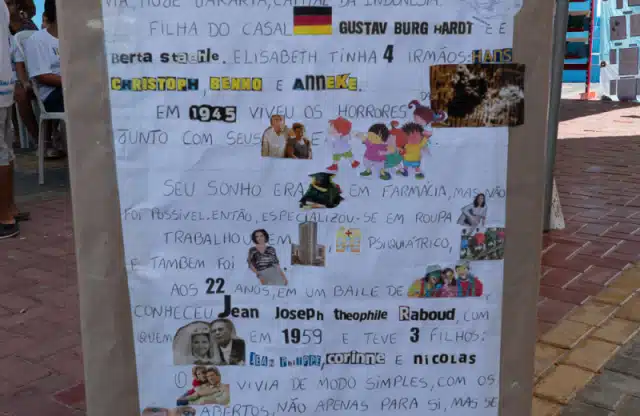 VIA, HOJE JAKARTA, CAPITAL DA INDONÉSIA.
FILHA DO CASAL GUSTAV BURGHARDT E E
Berta staehle. ELISABETH TINHA 4 IRMÃOS: HANS
CHRISTOPH, BENNO E ANNEKE.
EM 1945 VIVEU OS HORRORES DE
JUNTO COM SEUS E
SEU SONHO ERA EM FARMÁCIA, MAS NÃO
FOI POSSÍVEL. ENTÃO, ESPECIALIZOU-SE EM ROUPA
TRABALHOU EM PSIQUIÁTRICO,
E TAMBÉM FOI
AOS 22 ANOS, EM UM BAILE DE
CONHECEU Jean Joseph theophile Raboud, COM
QUEM EM 1959 E TEVE 3 FILHOS:
JEAN PHILIPPE, corinne E NICOLAS
O VIVIA DE MODO SIMPLES, COM OS
ABERTOS, NÃO APENAS PARA SI, MAS SE